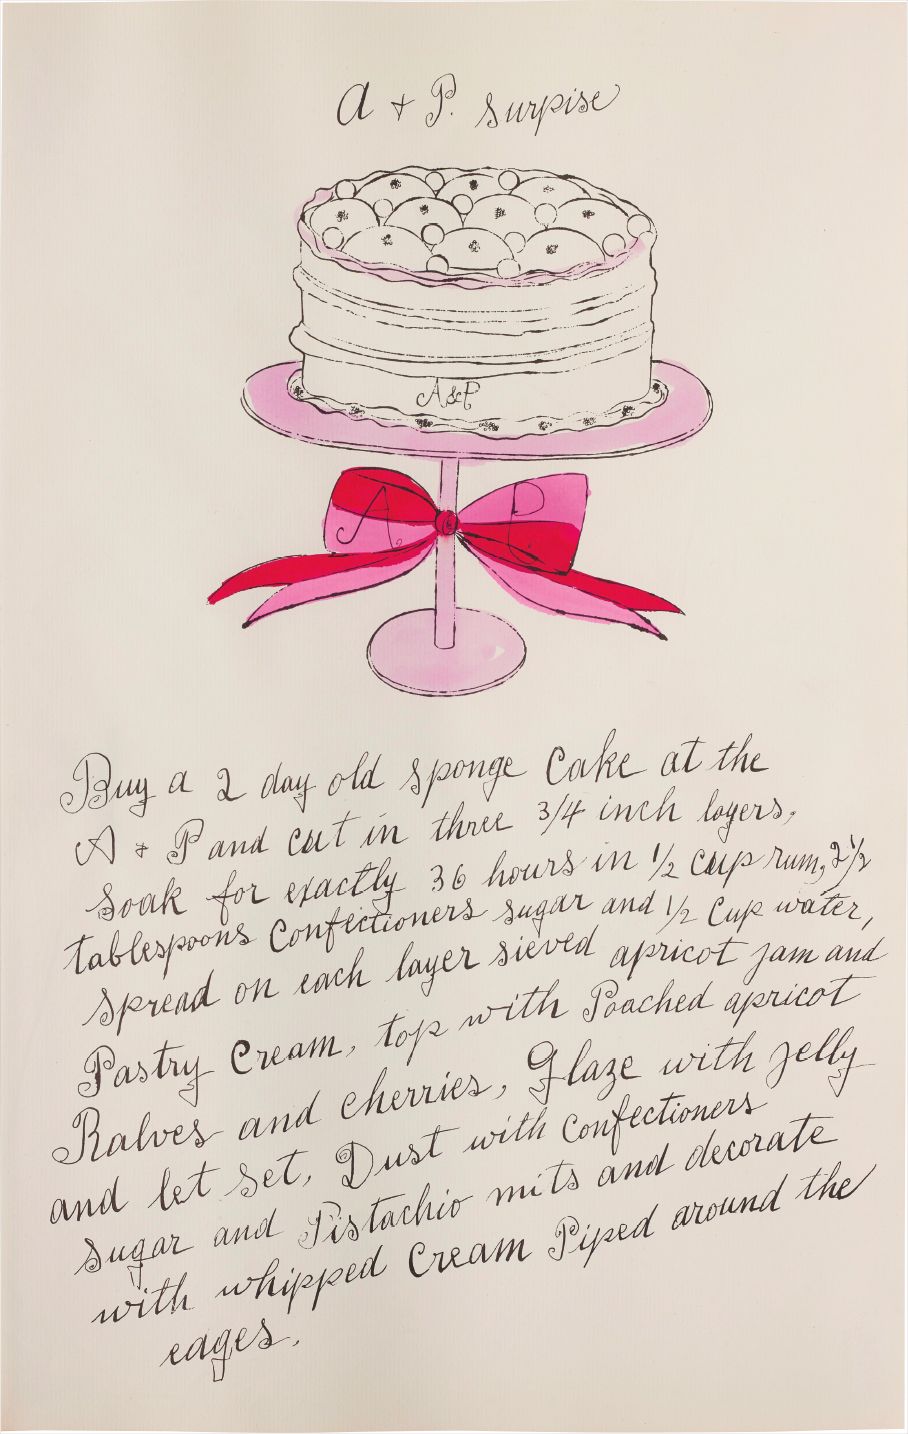 A + P. surpise
A&P
A. P
Buy a 2 day old sponge Cake at the
A + P and cut in three 3/4 inch layers,
soak for exactly 36 hours in 1/2 cup rum, 2 1/2
tablespoons Confectioners sugar and 1/2 Cup water,
spread on each layer sieved apricot jam and
Pastry Cream, top with Poached apricot
Halves and cherries, Glaze with jelly
and let set, Dust with confectioners
sugar and Pistachio nuts and decorate
with whipped Cream Piped around the
edges.